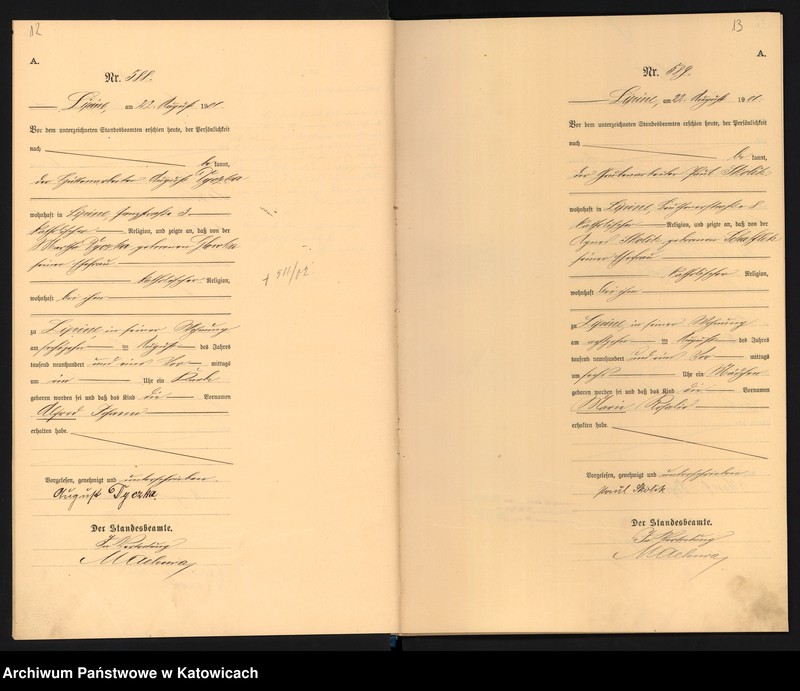 12
A.
Nr. 588.
Lipine, am 22. August 1901.
Vor dem unterzeichneten Standesbeamten erschien heute, der Persönlichkeit
nach
be kannt,
der Hüttenarbeiter August Tyczka
wohnhaft in Lipine, 3
katholischer Religion, und zeigte an, daß von der
Martha Tyczka geborenen
seiner Ehefrau
katholischer Religion,
wohnhaft bei ihm
zu Lipine in seiner Wohnung
am sechszehn ten August des Jahres
tausend neunhundert und eins Vor mittags
um Uhr ein Knabe
geboren worden sei und daß das Kind die Vornamen
Alfred
erhalten habe.
Vorgelesen, genehmigt und unterschrieben
August Tyczka.
Der Standesbeamte.
In Vertretung
† 511/02
13
A.
Nr. 589.
Lipine, am 22. August 1901.
Vor dem unterzeichneten Standesbeamten erschien heute, der Persönlichkeit
nach
be kannt,
der Grubenarbeiter Paul Skolik
wohnhaft in Lipine, 8
katholischer Religion, und zeigte an, daß von der
Agnes Skolik geborenen
seiner Ehefrau
katholischer Religion,
wohnhaft bei ihm
zu Lipine in seiner Wohnung
am achtzehn ten August des Jahres
tausend neunhundert und eins Vor mittags
um sechs Uhr ein Mädchen
geboren worden sei und daß das Kind die Vornamen
Marie Rosalie
erhalten habe.
Vorgelesen, genehmigt und unterschrieben
Paul Skolik
Der Standesbeamte.
In Vertretung
Archiwum Państwowe w Katowicach